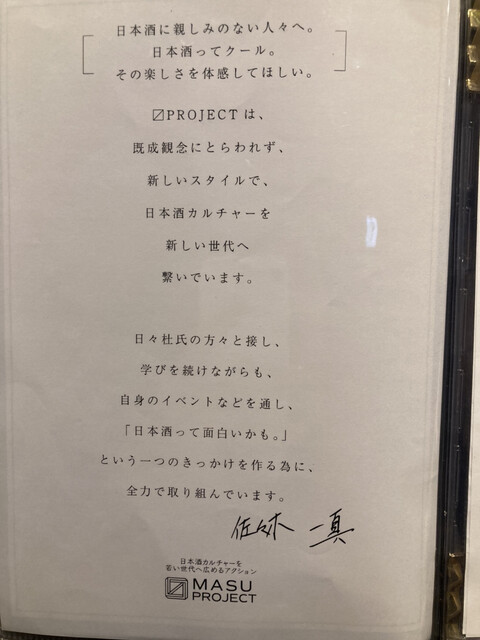 日本酒に親しみのない人々へ。
日本酒ってクール。
その楽しさを体感してほしい。
〼PROJECTは、
既成観念にとらわれず、
新しいスタイルで、
日本酒カルチャーを
新しい世代へ
繋いでいます。
日々杜氏の方々と接し、
学びを続けながらも、
自身のイベントなどを通し、
「日本酒って面白いかも。」
という一つのきっかけを作る為に、
全力で取り組んでいます。
佐々木 一真
日本酒カルチャーを
若い世代へ広めるアクション
MASU
PROJECT